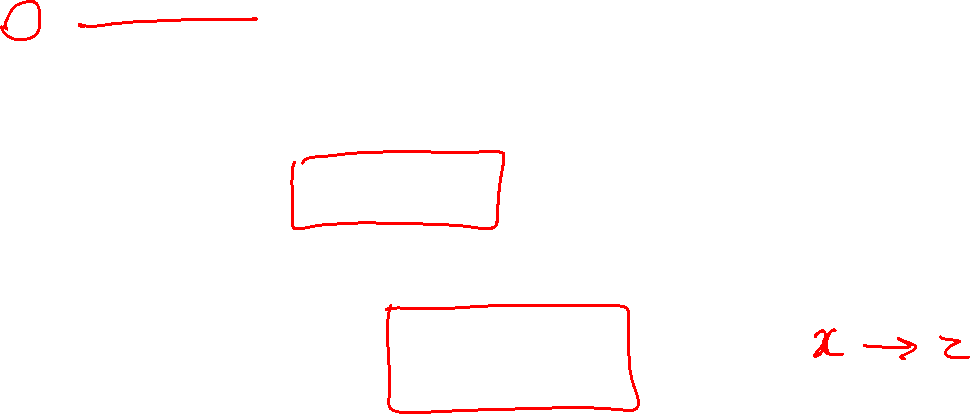 x → z